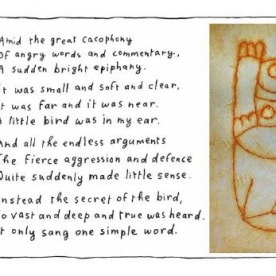 Amid the great cacophony
Of angry words and commentary,
A sudden bright epiphany.
It was small and soft and clear,
It was far and it was near.
A little bird was in my ear.
And all the endless arguments
The fierce aggression and defence
Quite suddenly made little sense.
Instead the secret of the bird,
So vast and deep and true was heard.
It only sang one simple word.